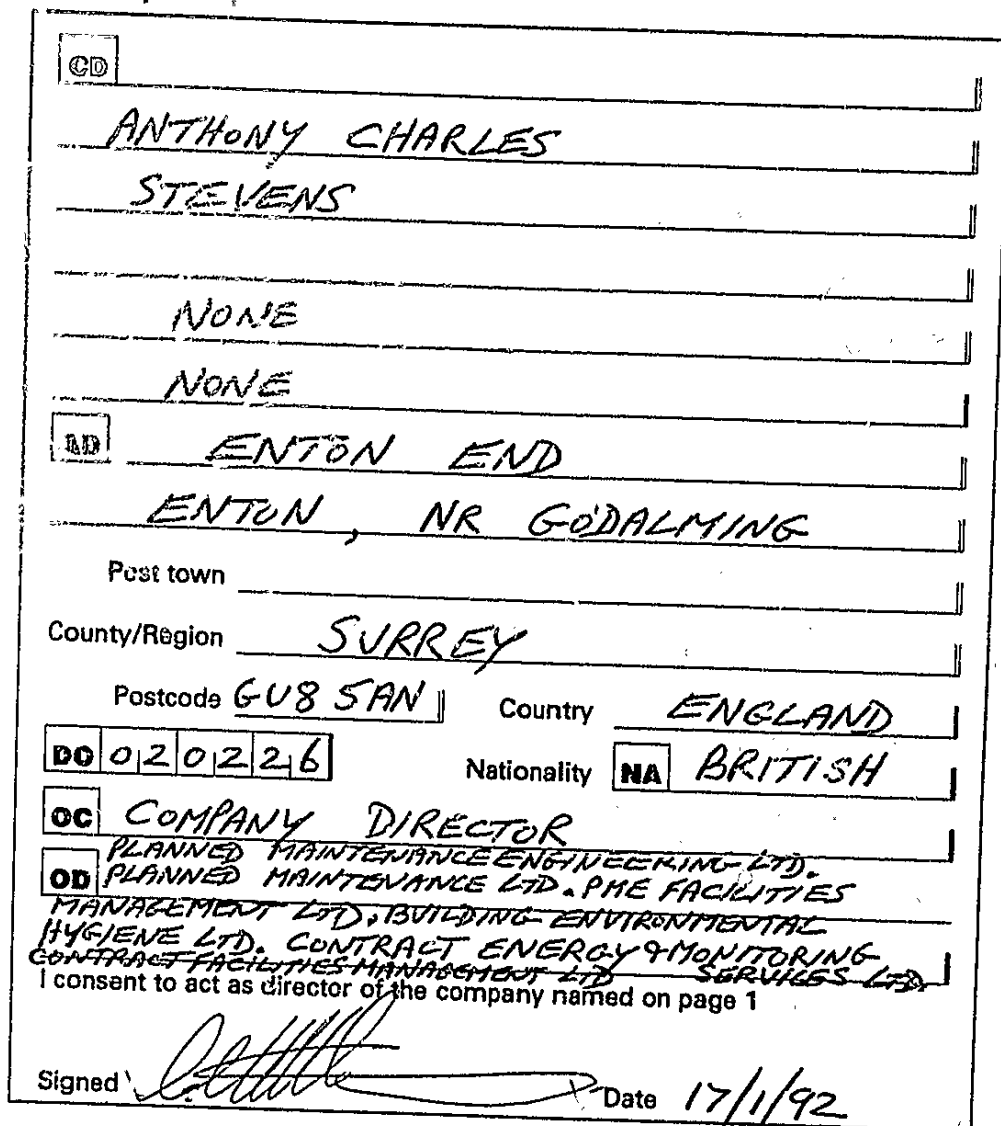 CD
ANTHONY CHARLES
STEVENS
NONE
NONE
AD ENTON END
ENTON, NR GODALMING
Post town
County/Region SURREY
Postcode GU8 5AN Country ENGLAND
DO 020226 Nationality NA BRITISH
OC COMPANY DIRECTOR
PLANNED MAINTENANCE ENGINEERING LTD.
OD PLANNED MAINTENANCE LTD. PME FACILITIES
MANAGEMENT LTD, BUILDING ENVIRONMENTAL
HYGIENE LTD. CONTRACT ENERGY & MONITORING
CONTRACT FACILITIES MANAGEMENT LTD SERVICES LTD.
I consent to act as director of the company named on page 1
Signed Date 17/1/92